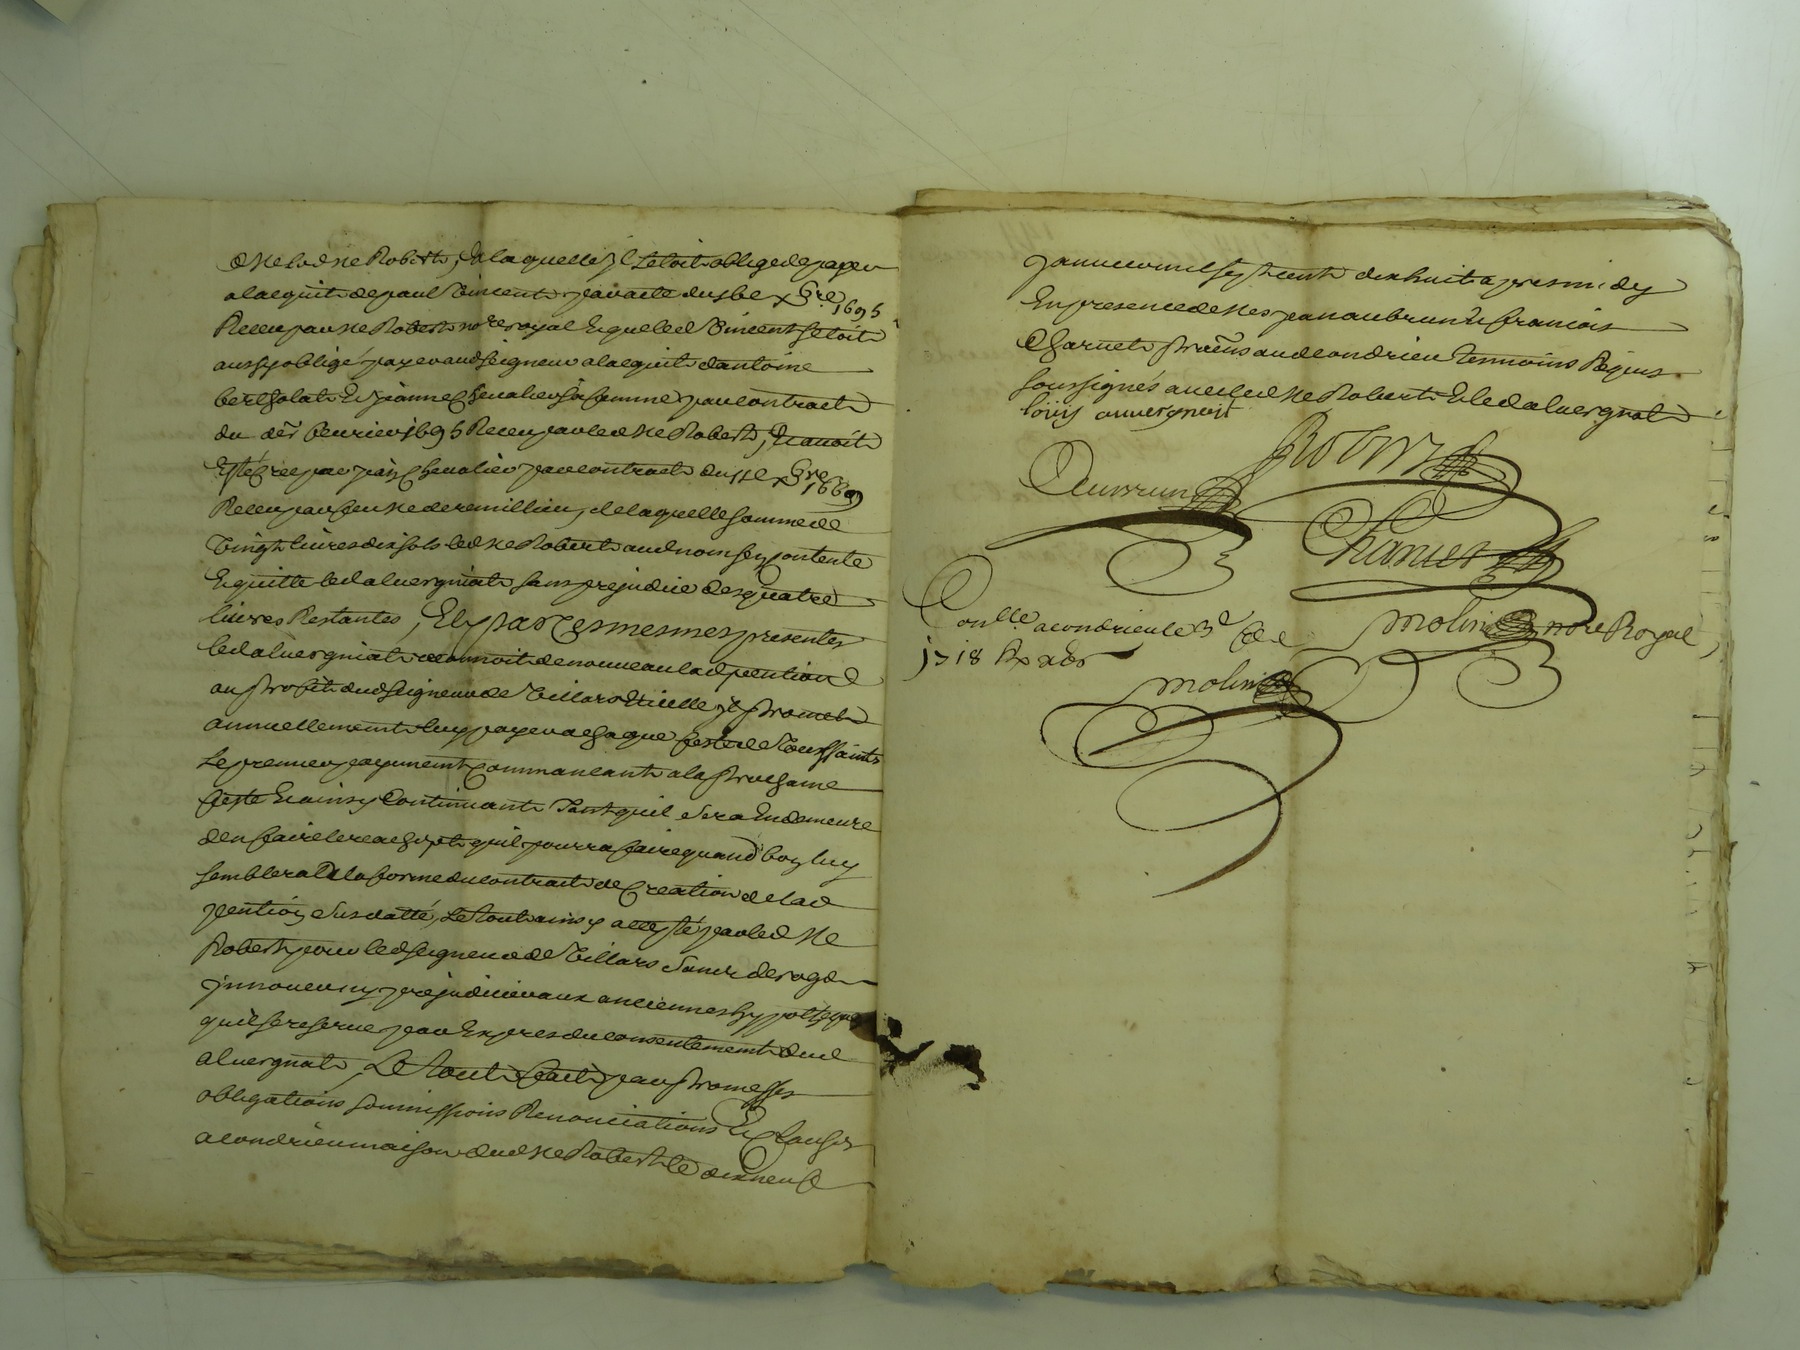 de Me led Me Robert, A la quelle jl Estoit obligé de payer
a lacquit de paul Vincent par acte du xbre 1695
Receu par Me Robert nore royal Et que led Vincent Estoit
aussy obligé payer aud seigneur a lacquit dantoine
bertholat Et jeanne chevalier sa femme par contract
du der feurier 1695 Receu par led Me Robert, Et auoit
Esté Créé par chevalier par contract du xbre 1669
Receu par feu Me de remillieu, de laquelle somme de
Vingt liures dix sols led Me Robert aud nom sey contente
Et quitte led aluergniat sans prejudice des quatre
liures Restantes, Et par Ces mesmes presentes
led aluergniat reconnoit de nouueau lad pention
au proffit dud seigneur de Villars Et icelle jl promet
annuellement luy payer a chaque feste de Toussaints
Le premier payement Commancant a la prochaine
feste Et ainsy Continuant Tant quil sera En demeure
den faire le reachept quil pourra faire quand bon luy
semblera A la forme du contract de Creation de lad
pention susdatté, Le tout ainsy accepté par led Me
Robert pour led seigneur de Villars sans deroger
jnnouer ny prejudicier aux anciennes hypotteques
quil se reserue par Expres du consentement dud
aluergnat, Le tout fait par promesses
obligations soumissions Renonciations Et Clauses
a condrieu maison dud Me Robert le dixneuf
januier mil sept cent dix huit apres midy
En presence de Mes jean aubrun Et francois
Charuet praticiens aud condrieu temoins Requis
soussignés auec led Me Robert Et led aluergnat
loüis auuergnat
Robert
Charuet
Conllé a condrieu le
Molin nore Royal
1718 Rx
Molin